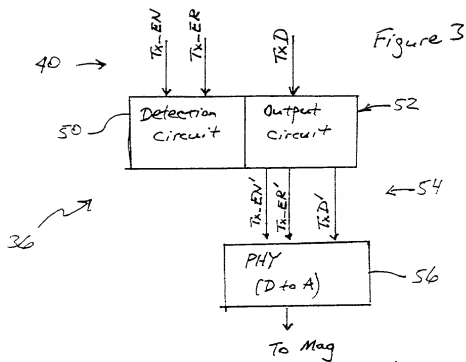 Figure 3
Tx_EN
Tx_ER
TxD
40
50
Detection
Circuit
Output
Circuit
52
Tx_EN'
Tx_ER'
TxD'
54
36
PHY
(D to A)
56
To Mag